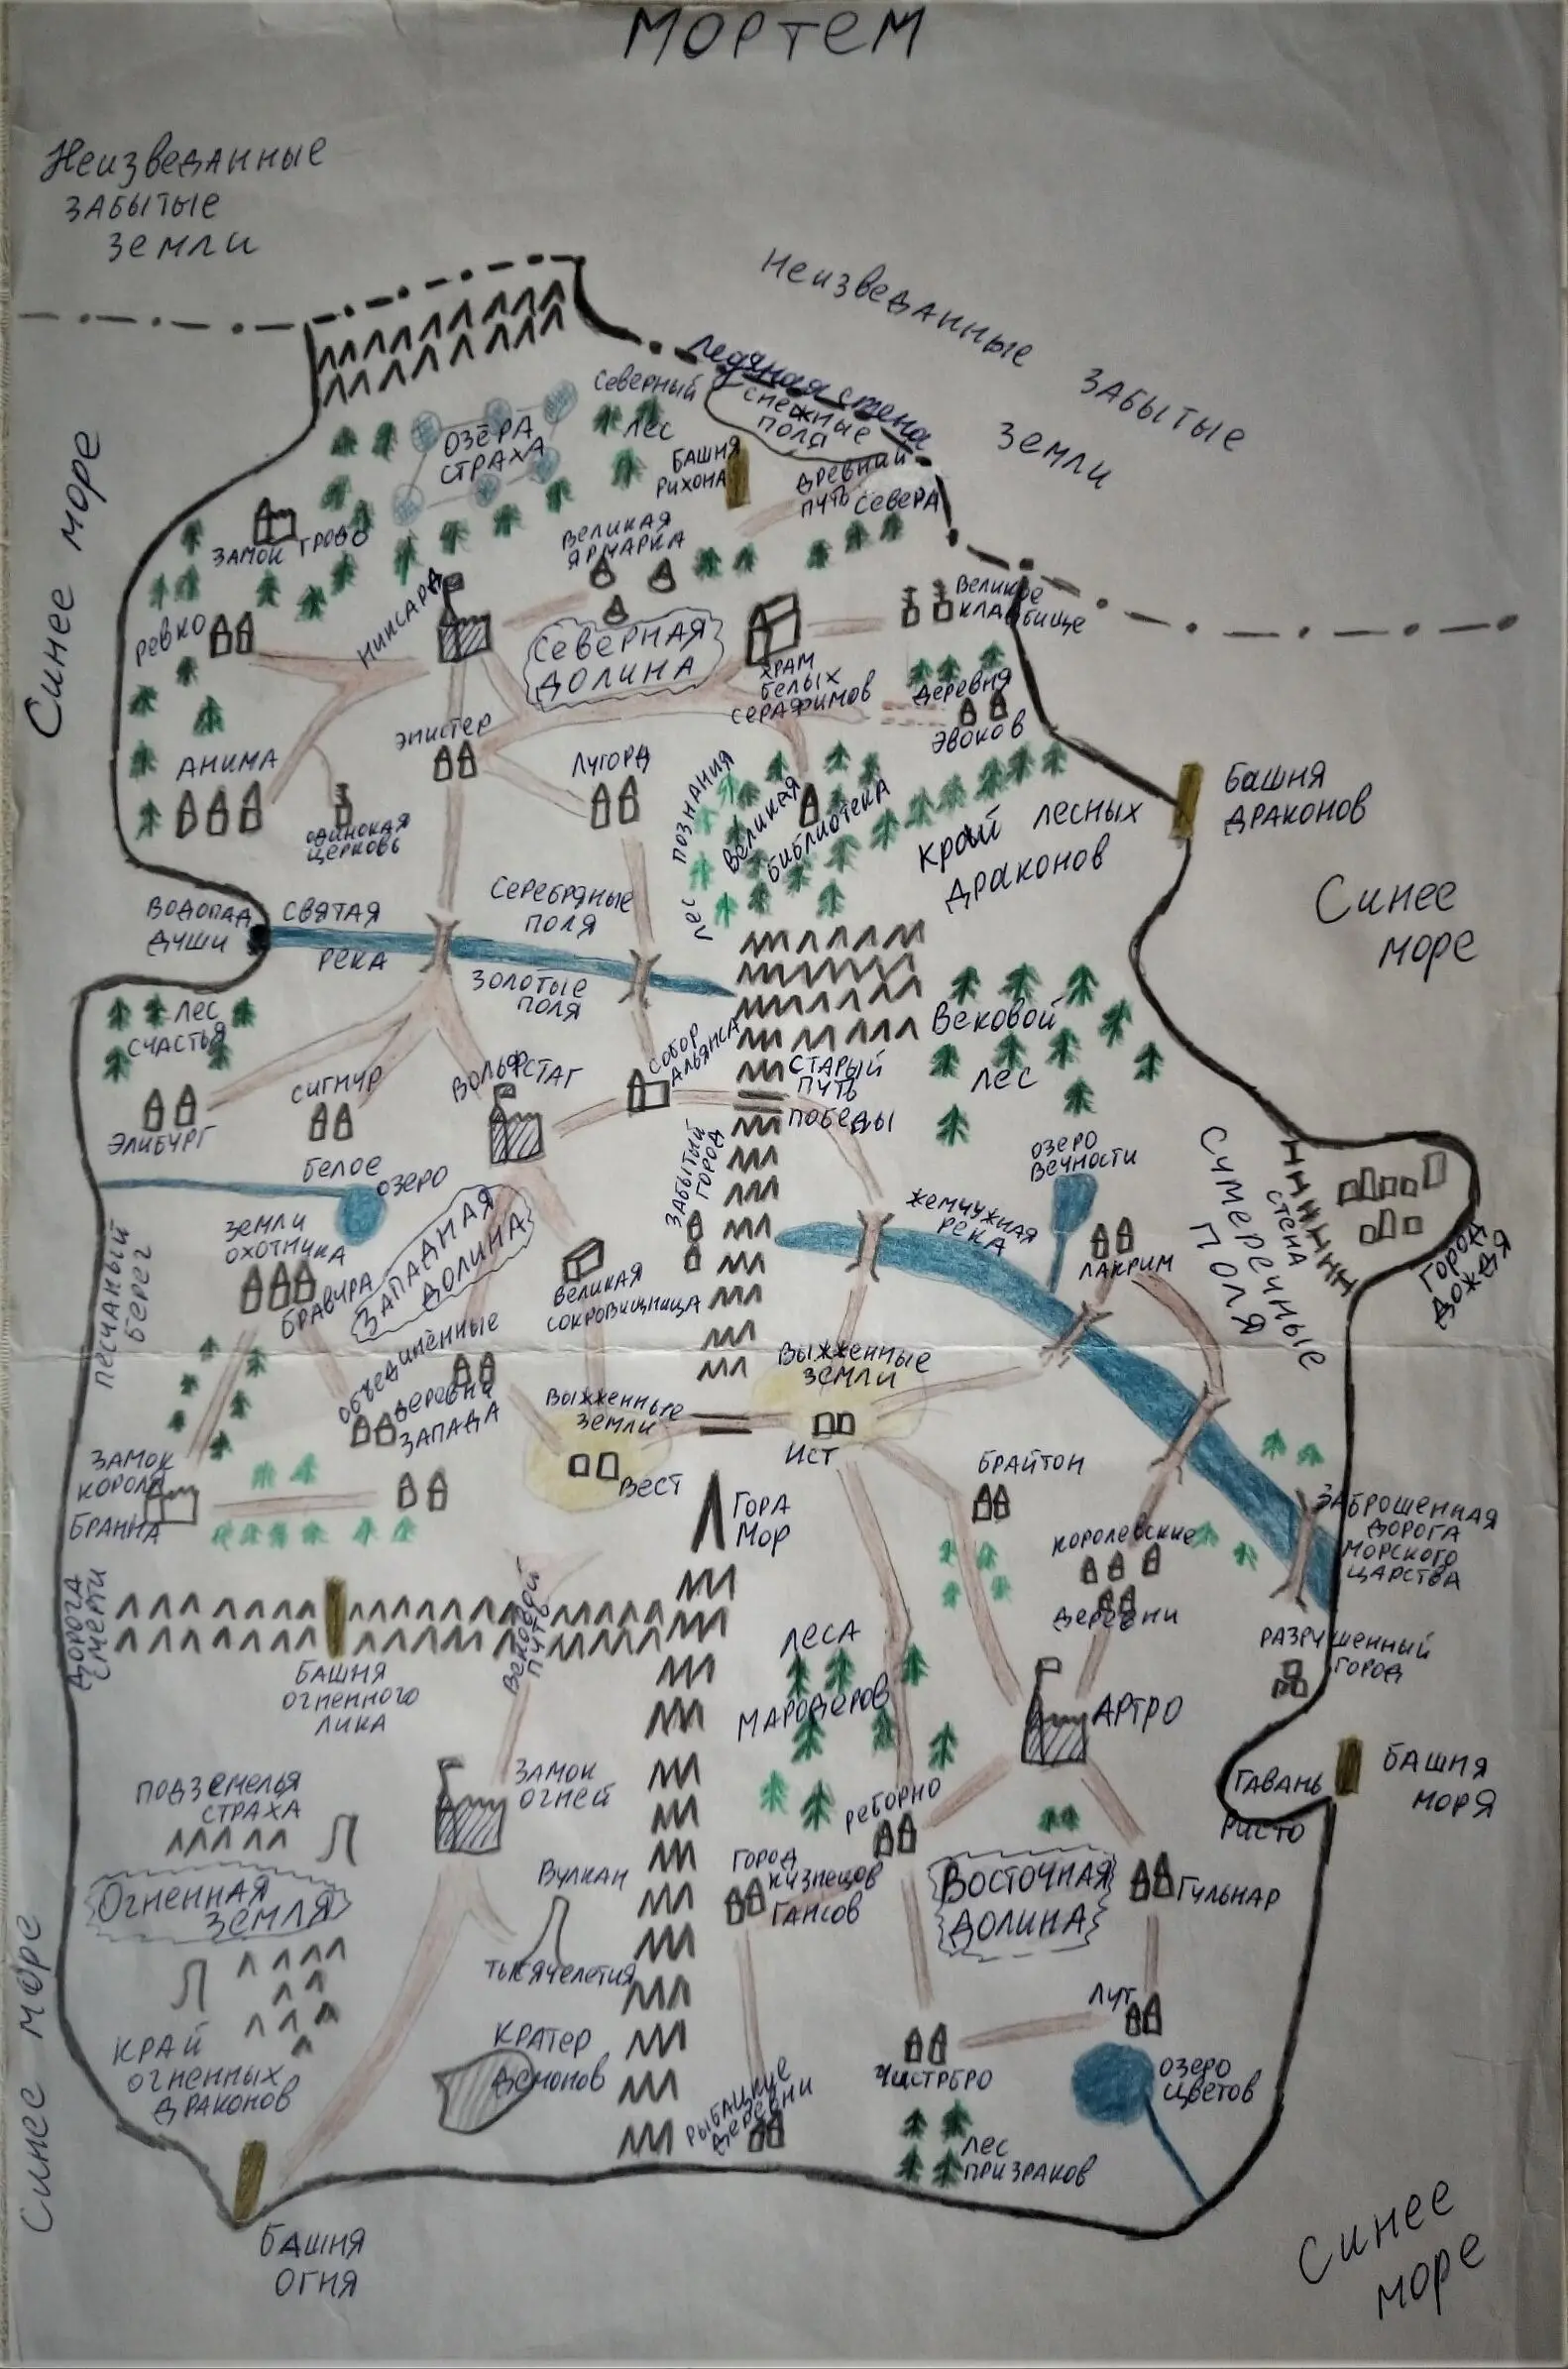 МОРТЕМ
Неизведанные
забытые
земли
Неизведанные забытые
земли
Ледяная стена
снежные
поля
Северный
лес
озёра
страха
башня
Рихона
древний
путь севера
Синее море
замок Грово
великая
ярмарка
Великое
кладбище
Ревко
Никсард
Северная
долина
храм
белых
серафимов
деревня
эвоков
эпистер
Анима
Лугорд
одинокая
церковь
лес познания
Великая
библиотека
край лесных
драконов
башня
драконов
Синее
море
водопад
души
святая
река
Серебряные
поля
золотые
поля
лес
счастья
Вековой
лес
собор
альянса
старый
путь
победы
Сигмур
Вольфстаг
Элибург
белое
озеро
забытый
город
озеро
вечности
жемчужная
река
Лакрим
Сумеречные
поля
стена
город
дождя
песчаный
берег
земли
охотника
Бравура
Западная
долина
великая
сокровищница
объединённые
деревни
запада
Выжженные
земли
Выжженные
земли
Вест
Ист
замок
короля
Бранна
Брайтон
гора
Мор
заброшенная
дорога
морского
царства
королевские
деревни
дорога
смерти
вековой
путь
башня
огненного
лика
леса
мародеров
разрушенный
город
Артро
замок
огней
подземелья
страха
гавань
Ристо
башня
моря
Реборно
Огненная
земля
Вулкан
тысячелетия
город
кузнецов
Гансов
Восточная
долина
Гульнар
Лут
край
огненных
драконов
кратер
демонов
рыбацкие
деревни
Чистрбро
озеро
цветов
лес
призраков
Синее море
башня
огня
Синее
море